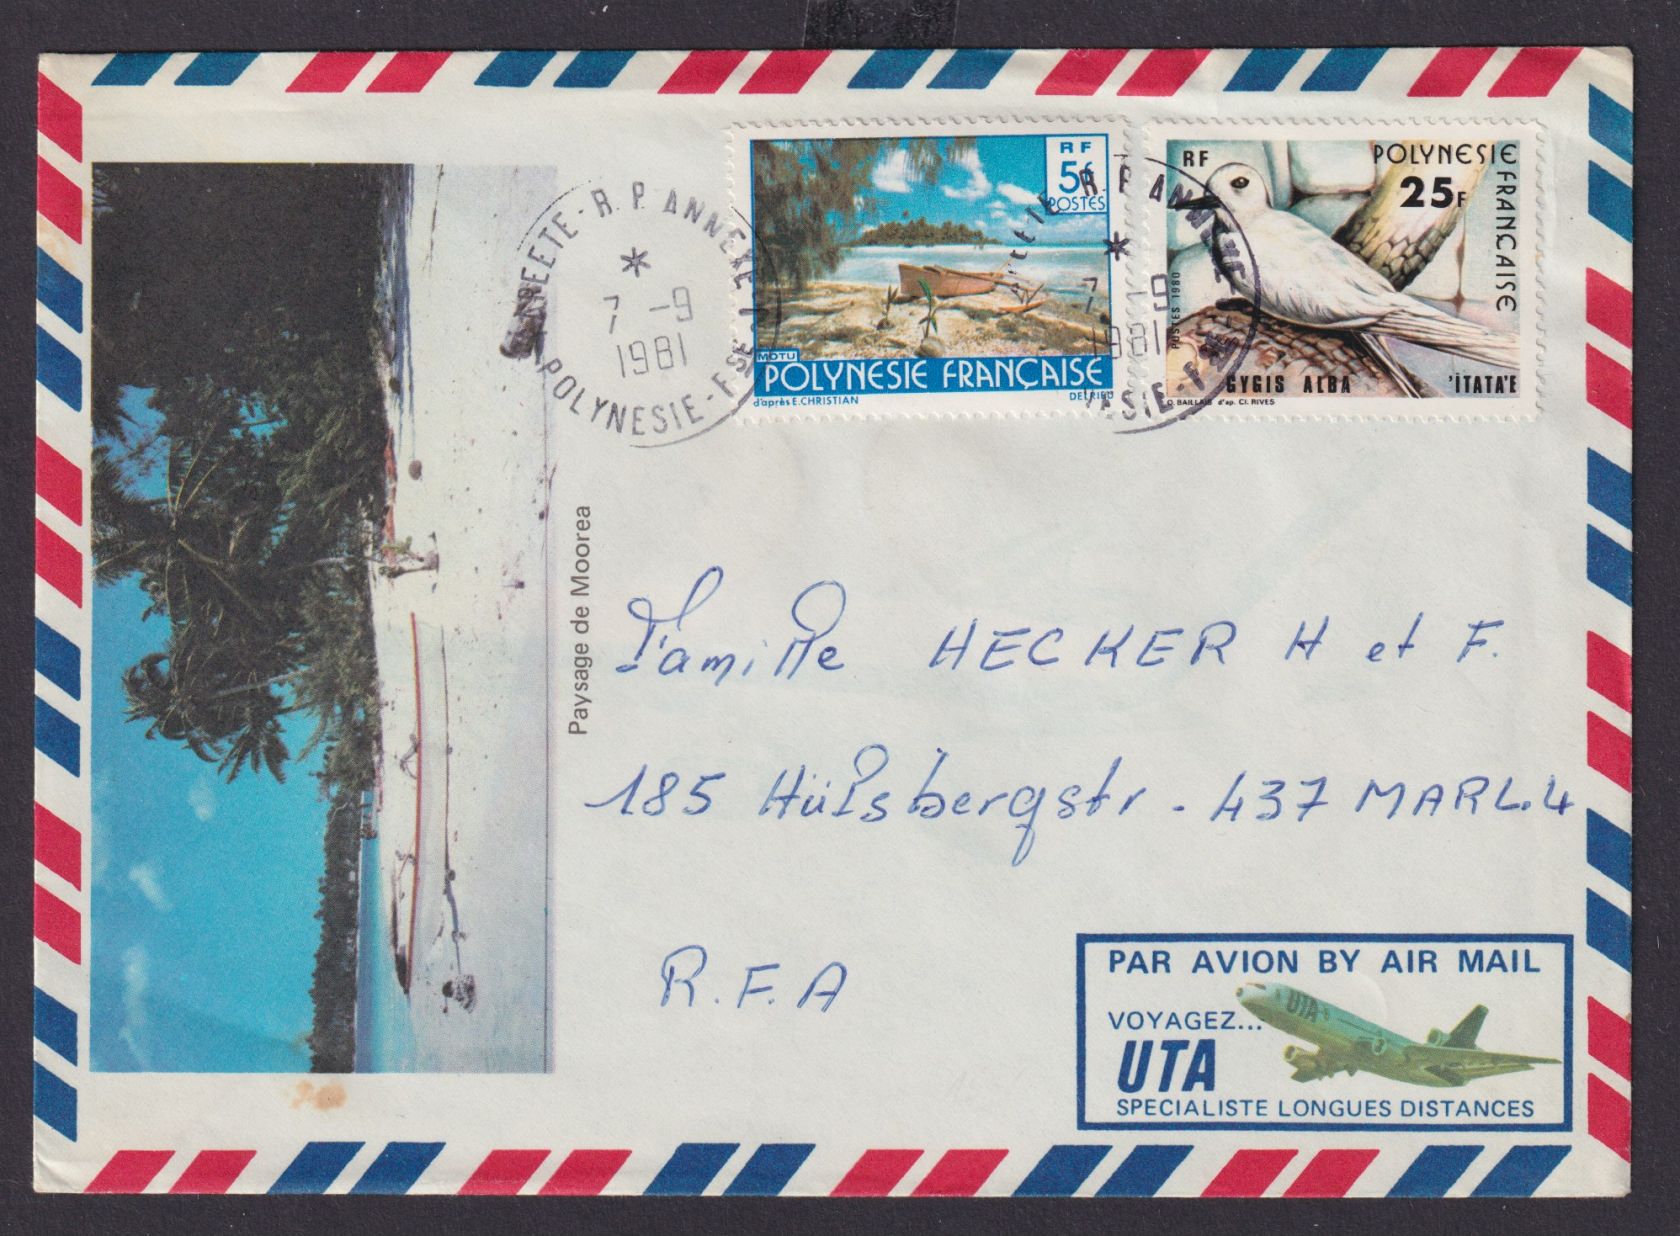 RF
5f
POSTES
MOTU
POLYNESIE FRANÇAISE
d'après E. CHRISTIAN DELRIEU
RF POLYNESIE FRANCAISE
25F
POSTES 1980
GYGIS ALBA 'ITATA'E
O. BAILLAIS d'ap. Cl. RIVES
PAPEETE - R.P. ANNEXE
7 -9
1981
POLYNESIE - FSE
R.P. ANNEXE
7 -9
1981
Paysage de Moorea
Famille HECKER H et F.
185 Hülsbergstr - 437 MARL.4
R.F.A
PAR AVION BY AIR MAIL
VOYAGEZ...
UTA
UTA
SPECIALISTE LONGUES DISTANCES